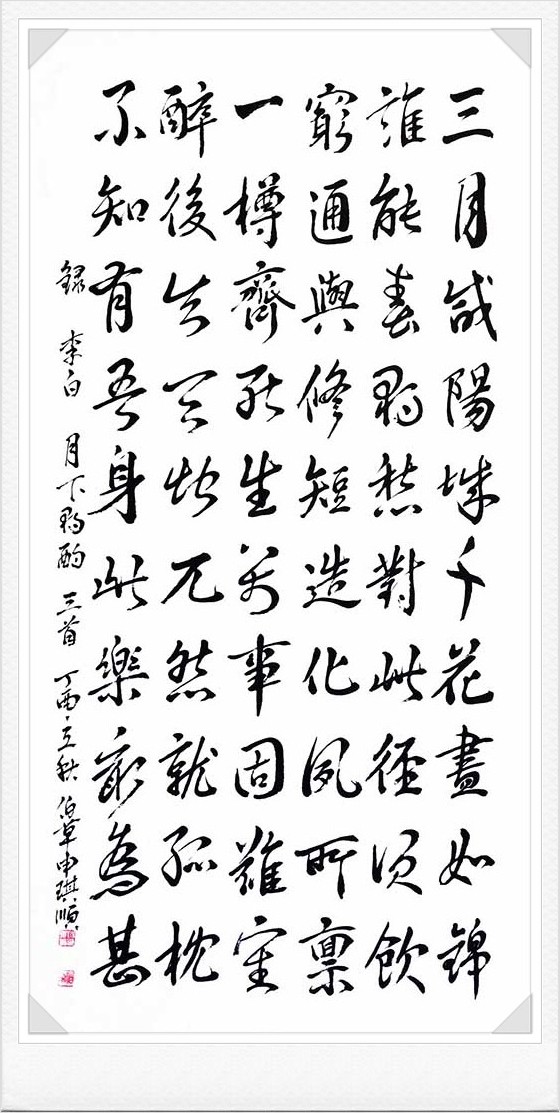 三月咸陽城千花晝如錦
誰能春獨愁對此徑須飲
窮通與修短造化夙所稟
一樽齊死生萬事固難審
醉後失天地兀然就孤枕
不知有吾身此樂最為甚
錄 李白 月下獨酌 三首 丁酉 立秋 申琪順